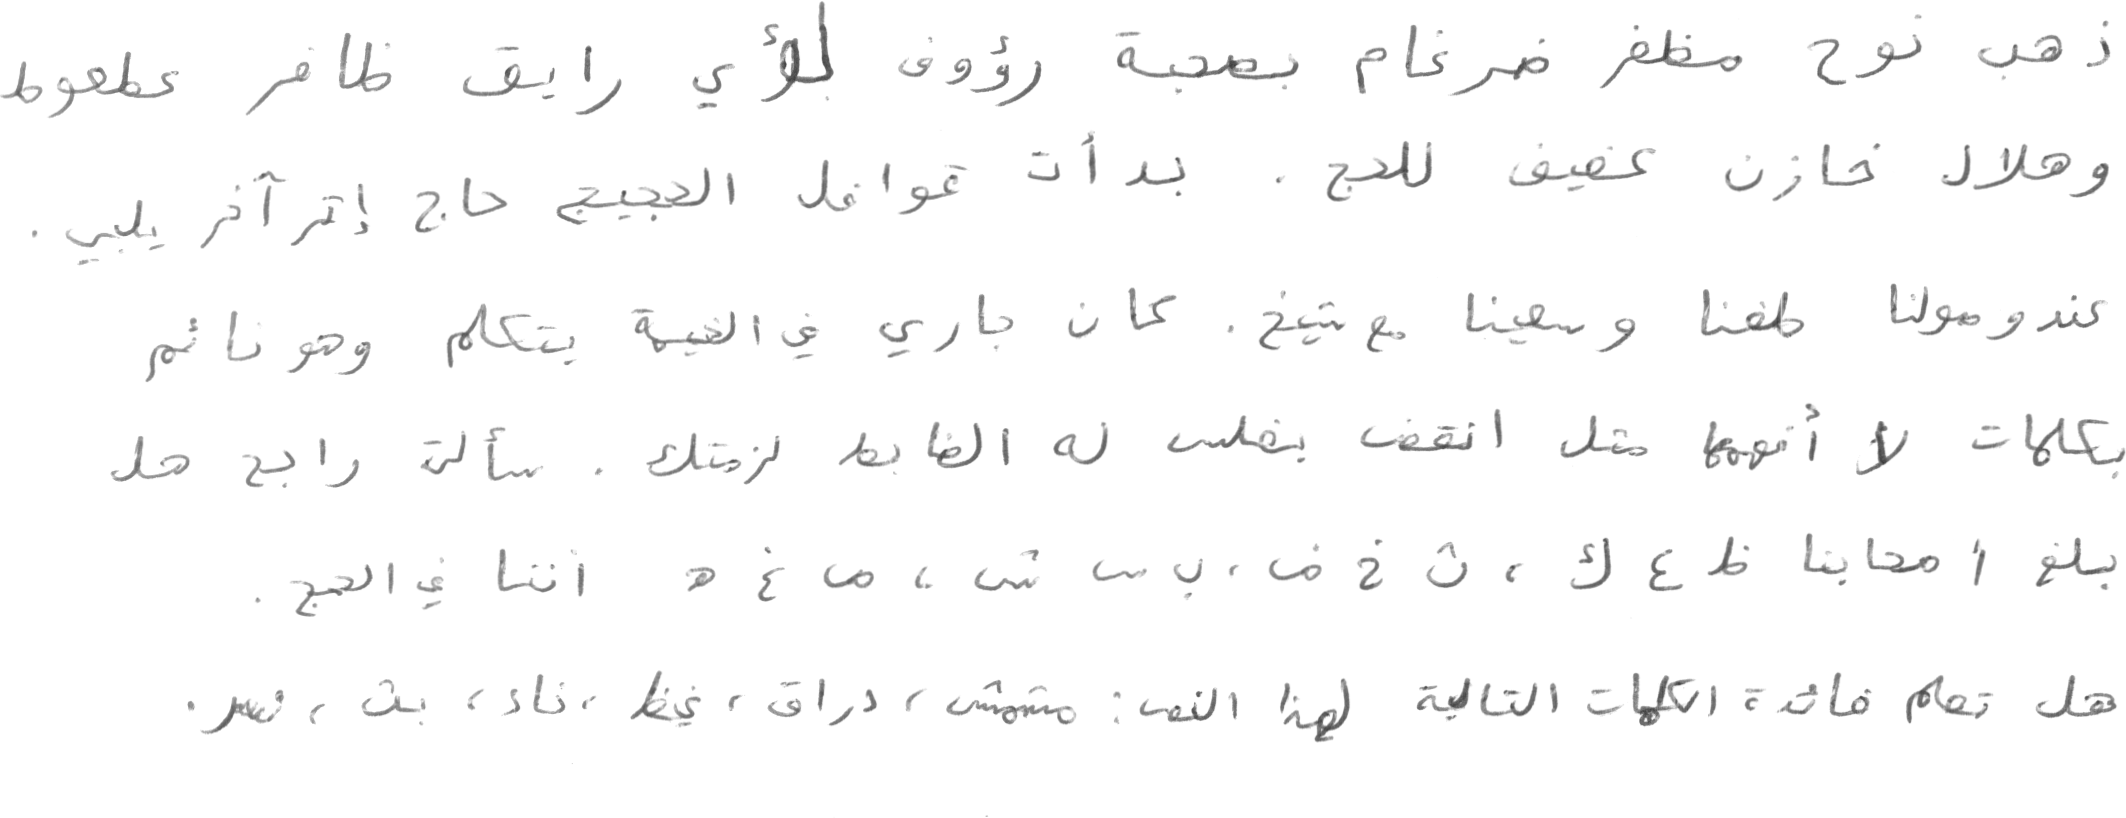 ذهب نوح مظفر ضرغام بصحبة رؤوف بلأي رايق ظافر عطعوط
وهلال خازن عفيف للحج . بدأت قوافل الحجيج حاج إثر آخر يلبي .
عند وصولنا طفنا وسعينا مع شيخ . كان جاري في الخيمة يتكلم وهو نائم
بكلمات لا أفهمها مثل انقض بغلس له الضابط لزمتك . سألت رابح هل
بلغ أصحابنا ظ ع ك ، ث خ ف ، ب س ش ، ص غ ه اننا في الحج .
هل تعلم فائدة الكلمات التالية لهذا النص : مشمش ، دراق ، غظ ، ناد ، بث ،